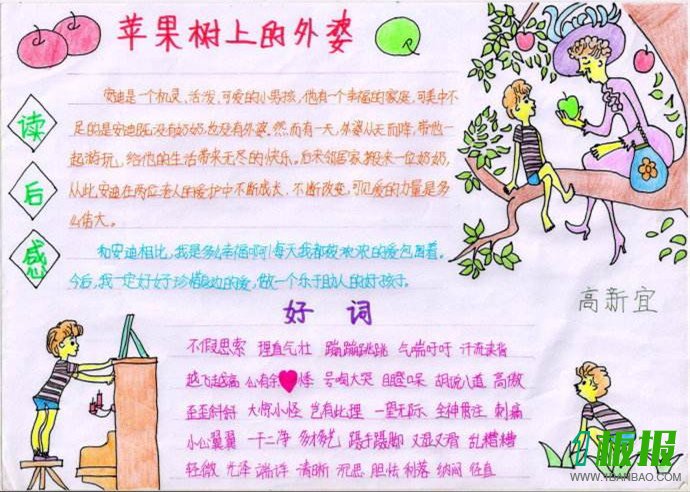 苹果树上的外婆
读后感
安迪是一个机灵、活泼、可爱的小男孩,他有一个幸福的家庭,可美中不
足的是安迪既没有奶奶,也没有外婆。然而有一天,外婆从天而降,带他一
起游玩,给他的生活带来无尽的快乐。后来邻居家搬来一位奶奶,
从此安迪在两位老人的爱护中不断成长、不断改变,可见爱的力量是多
么伟大。
和安迪相比,我是多么幸福啊!每天我都被浓浓的爱包围着。
今后,我一定好好珍惜身边的爱,做一个乐于助人的好孩子。
高新宜
好词
不假思索 理直气壮 蹦蹦跳跳 气喘吁吁 汗流浃背
号啕大哭 目瞪口呆 胡说八道 高傲
歪歪斜斜 大惊小怪 岂有此理 一望无际 全神贯注 刺痛
小心翼翼 一干二净 多才多艺 蹑手蹑脚 又湿又滑 乱糟糟
轻微 光泽 端详 清晰 沉思 胆怯 利落 纳闷 径直
板报
WWW.1BANBAO.COM